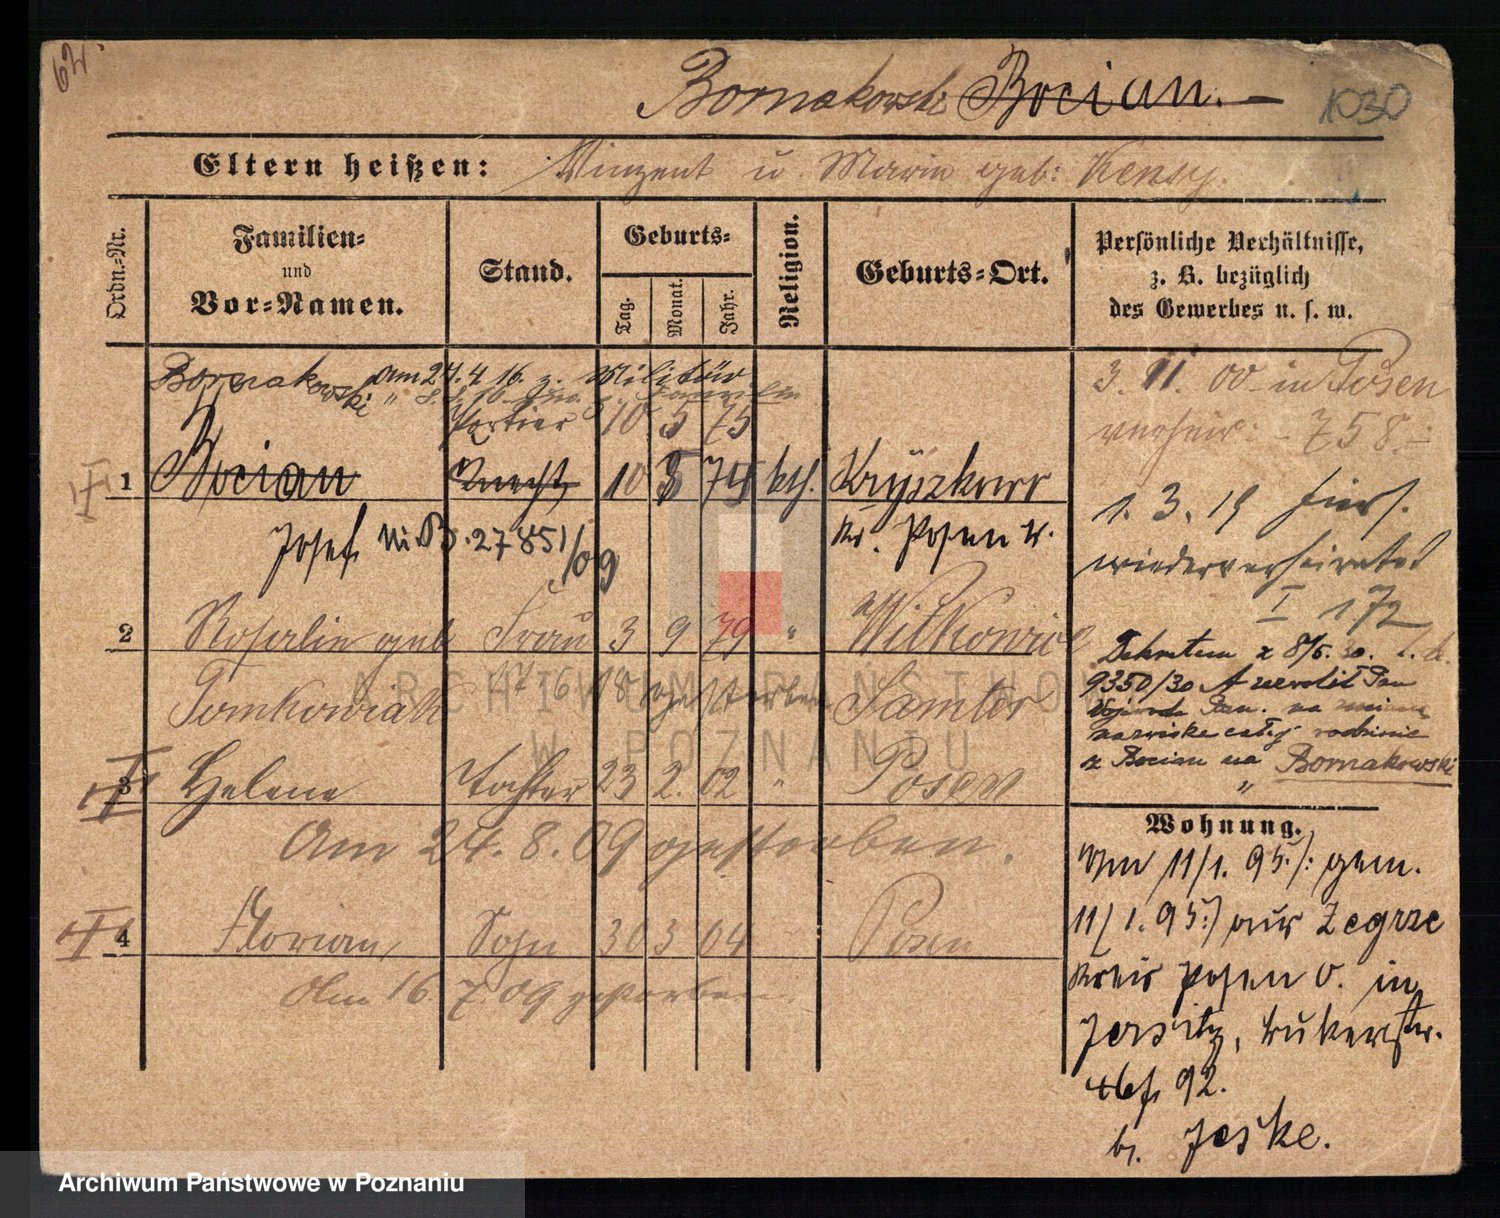 62.
Bornakowski Bocian.
1030
Eltern heißen: Vinzent u. Marie geb: Kensy.
Ordn.-Nr.
Familien-
und
Vor-Namen.
Stand.
Geburts-
Tag.
Monat.
Jahr.
Religion.
Geburts-Ort.
Persönliche Verhältnisse,
z. B. bezüglich
des Gewerbes u. s. w.
Bornakowski am 24.4.16. z. Militär
Portier 10 5 75
1 Bocian Knecht 10 5 75 kth. Kryszkowo
Josef Kr. Posen W.
2 Rosalie geb Frau 3 9 79 " Witkowice
Tomkowiak gestorben Samter
3 Helene Tochter 23 2. 02 " Posen
Am 24.8.09 gestorben.
4 Florian, Sohn 30 3 04 Posen
Am 16.7.09 gestorben.
3.11.00 in Posen
verheir: - 758.-
1.3.19 hier
wiederverheiratet
I 172
Dekretem z 8/5.30. L.dz.
9350/30 zezwolił Pan
Wojewoda Pozn. na zmianę
nazwiska całej rodzinie
z Bocian na Bornakowski
"
Wohnung.
Am 11/1.95./: gem.
11/1.95:/ aus Zegrze
Kreis Posen O. in
Jersitz,
92.
b. Jeske.
ARCHIWUM PAŃSTWOWE
W POZNANIU
Archiwum Państwowe w Poznaniu